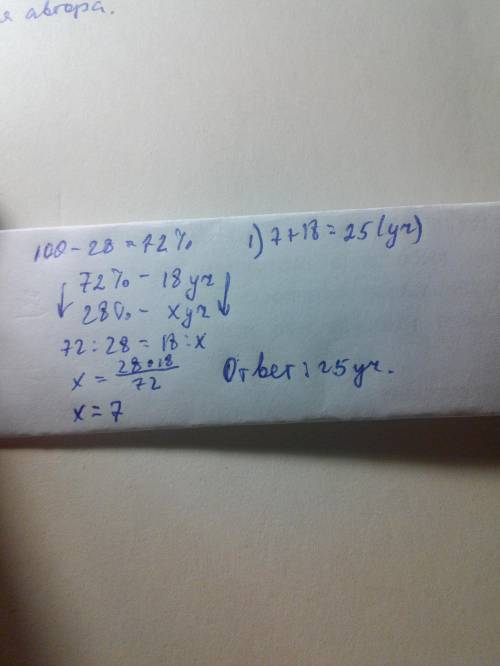 я автора.
100 - 28 = 72%
72% - 18 уч
28% - x уч
72 : 28 = 18 : x
x = 28 • 18 / 72
x = 7
1) 7 + 18 = 25 (уч)
Ответ: 25 уч.